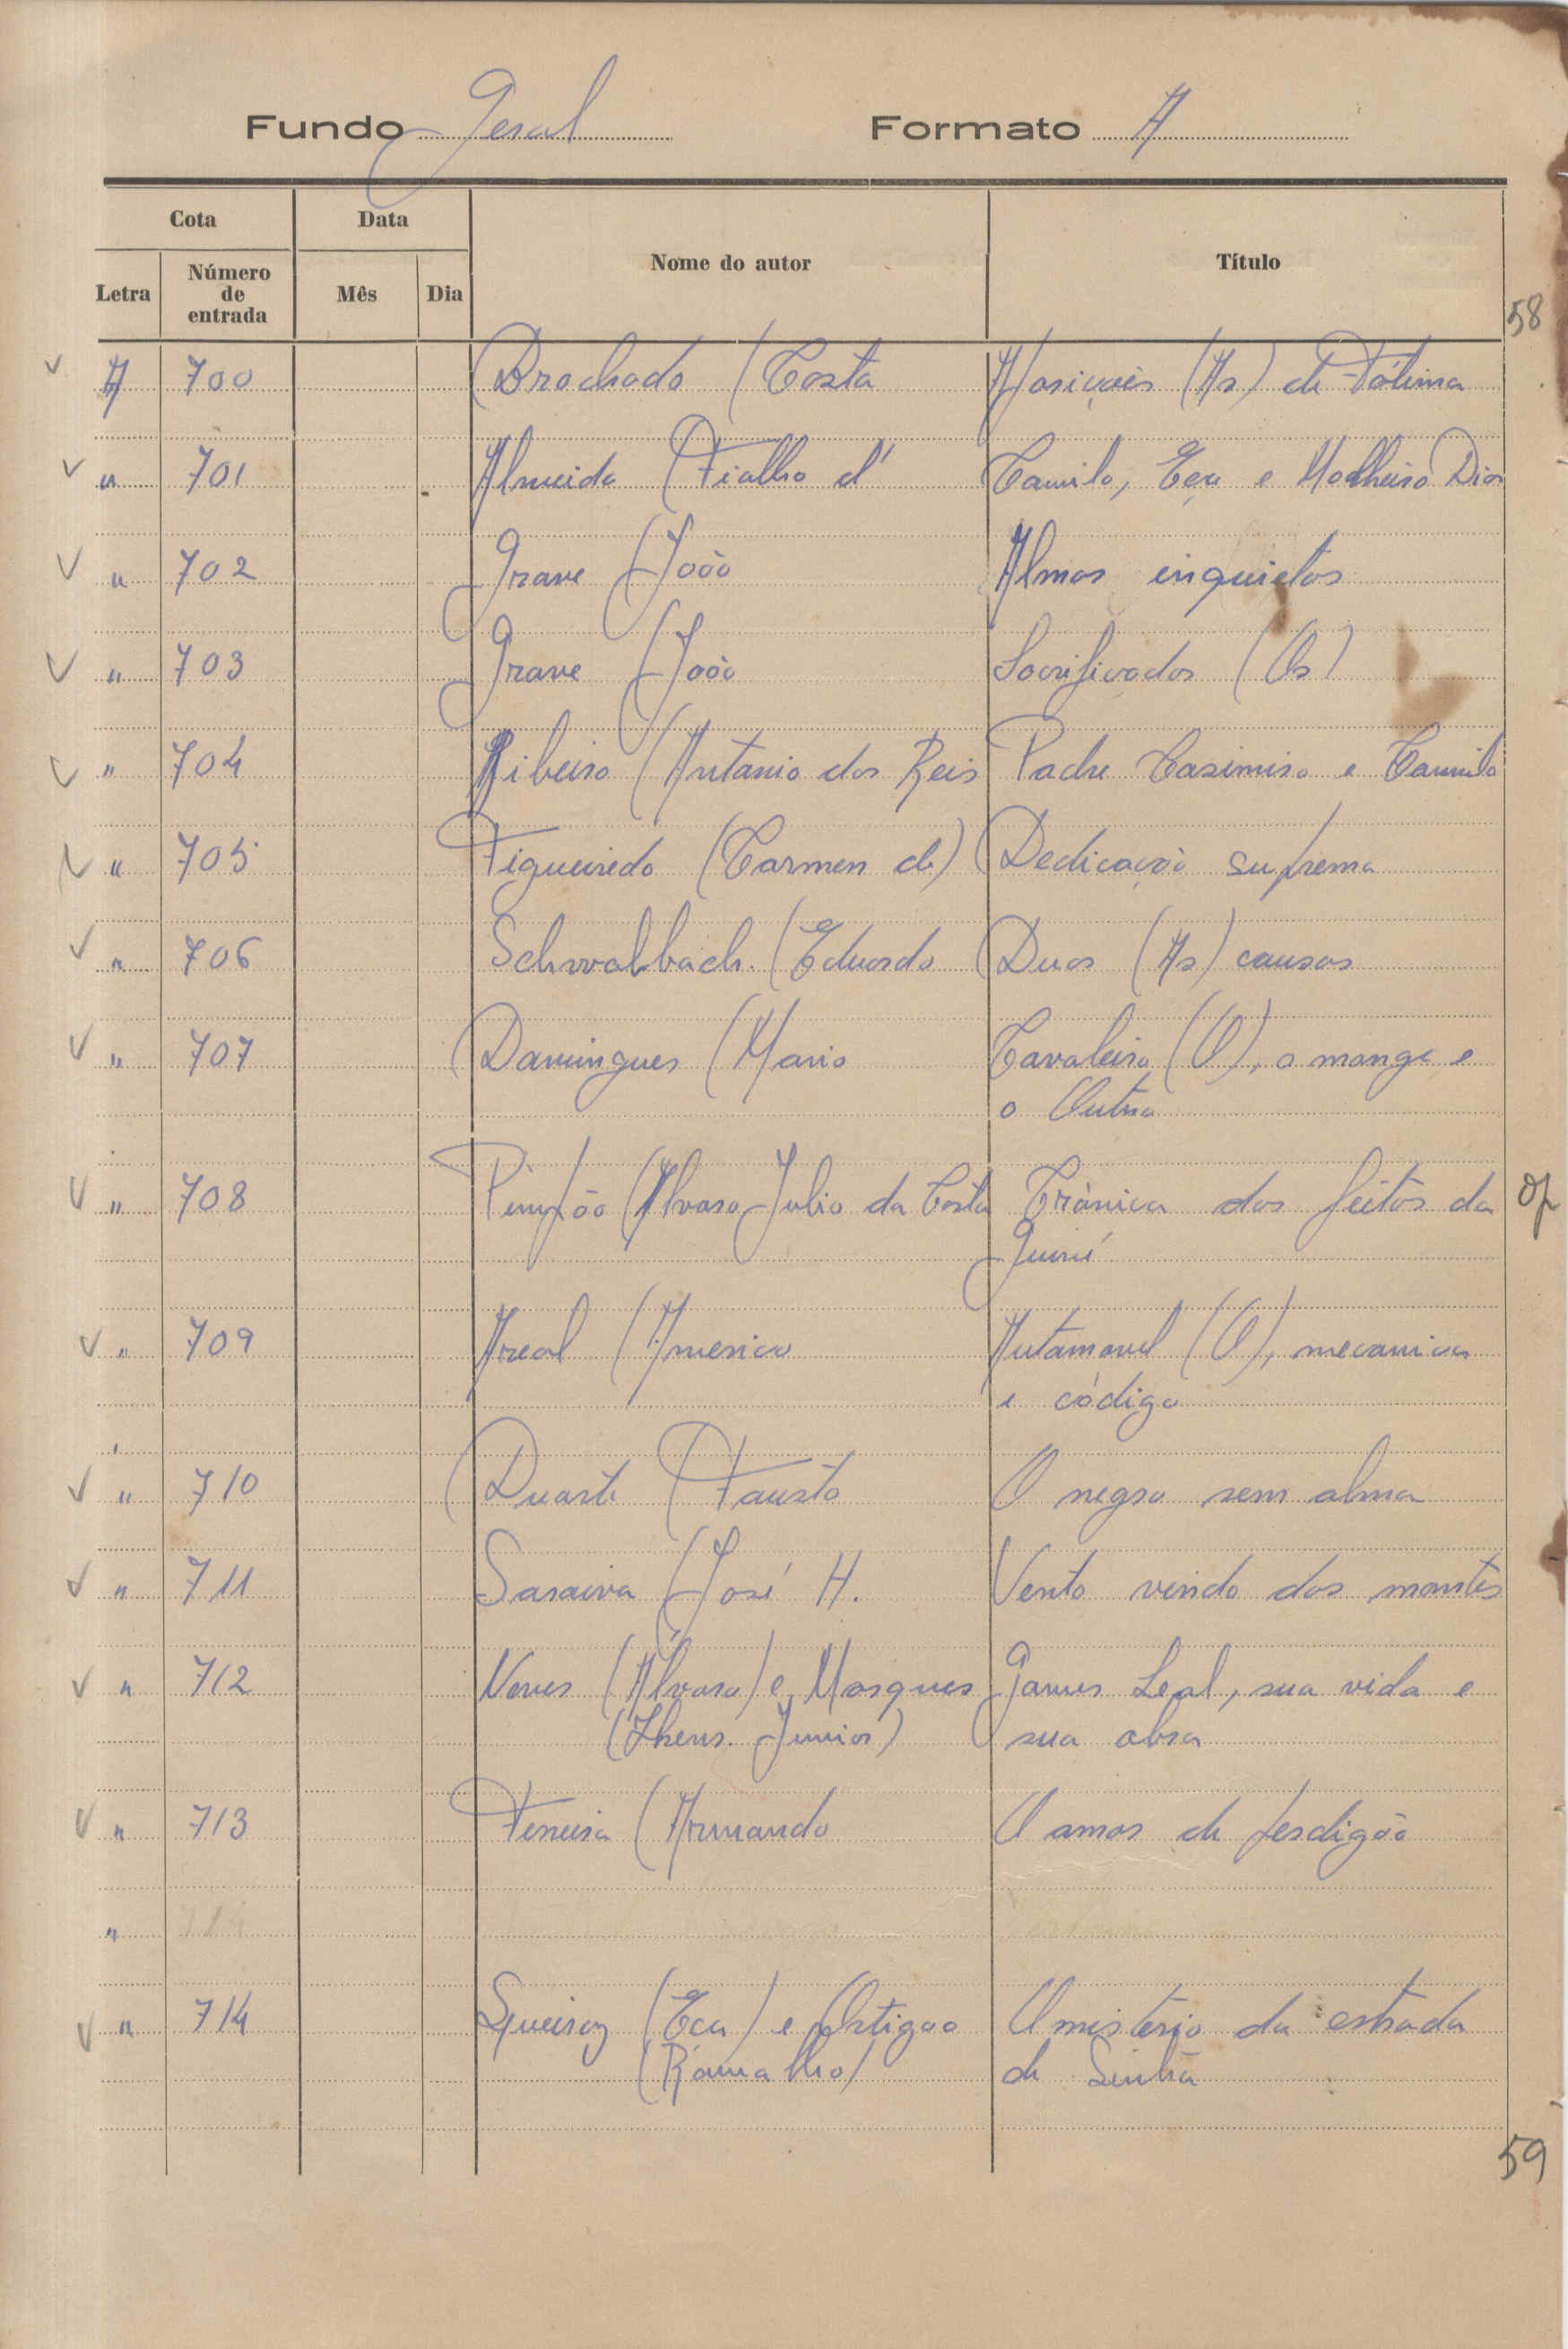 Fundo Geral Formato A
Cota Data Nome do autor Título
Letra Número de entrada Mês Dia
58
A 700 Brochado (Costa (As) de Fátima
" 701 Almeida (Fialho d' Camilo, Eça e Malheiro Dias
" 702 Grave (João Almas inquietas
" 703 Grave (João Sacrificados (Os)
" 704 Ribeiro (Antonio dos Reis Padre Casimiro e Camilo
" 705 Figueiredo (Carmen de) Dedicação suprema
" 706 Schwalbach (Eduardo Duas (As) causas
" 707 Domingues (Mario Cavaleiro (O), o monge e
o Outro
" 708 Pimpão (Alvaro Julio da Costa Crónica dos feitos da
Guiné
Op
" 709 Areal (Americo Automovel (O), mecanica
e código
" 710 Duarte (Fausto O negro sem alma
" 711 Saraiva (José H. Vento vindo dos montes
" 712 Neves (Álvaro) e Marques Gomes Leal, sua vida e
Junior) sua obra
" 713 Ferreira (Armando O amor de perdigão
" 714
" 714 Queiroz (Eça) e Ortigao O misterio da estrada
(Ramalho) de Sintra
59